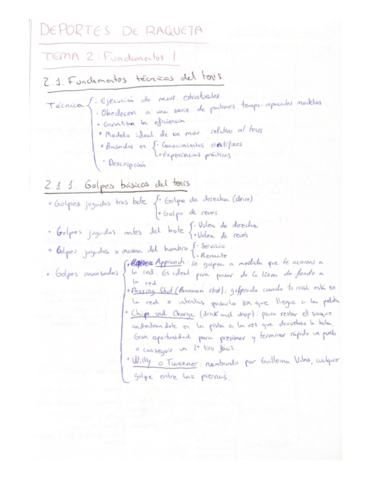 DEPORTES DE RAQUETA
TEMA 2: Fundamentos 1
2.1. Fundamentos técnicos del tenis
Técnica - Ejecución de mov. estructurales
- Obedecen a una serie de patrones tempo-espaciales modelos
- Garantiza la eficiencia
• Modelo ideal de un mov. relativo al tenis
• Basados en - Conocimientos científicos
• Experiencias prácticas
- Descripción
2.1.1 Golpes básicos del tenis
• Golpes jugados tras bote - Golpe de derecha (drive)
• Golpe de revés
• Golpes jugados antes del bote - Volea de derecha
• Volea de revés
• Golpes jugados x encima del hombro - Servicio
- Remate
• Golpes avanzados Approach: se golpea a medida que te acercas a
la red. Es ideal para pasar de la línea de fondo a
la red
• Passing Shot ( shot): golpeando cuando tu rival está en
la red e intentas pasarlo sin que llegue a la pelota
• Chip and Charge ( and drop): para restar el saque
en la pista a la vez que devuelves la bola.
Gran oportunidad para presionar y terminar rápido un punto
o conseguir un tiro fácil
• Willy o Tweener: nombrado por Guillermo Vilas, cualquier
golpe entre las piernas.